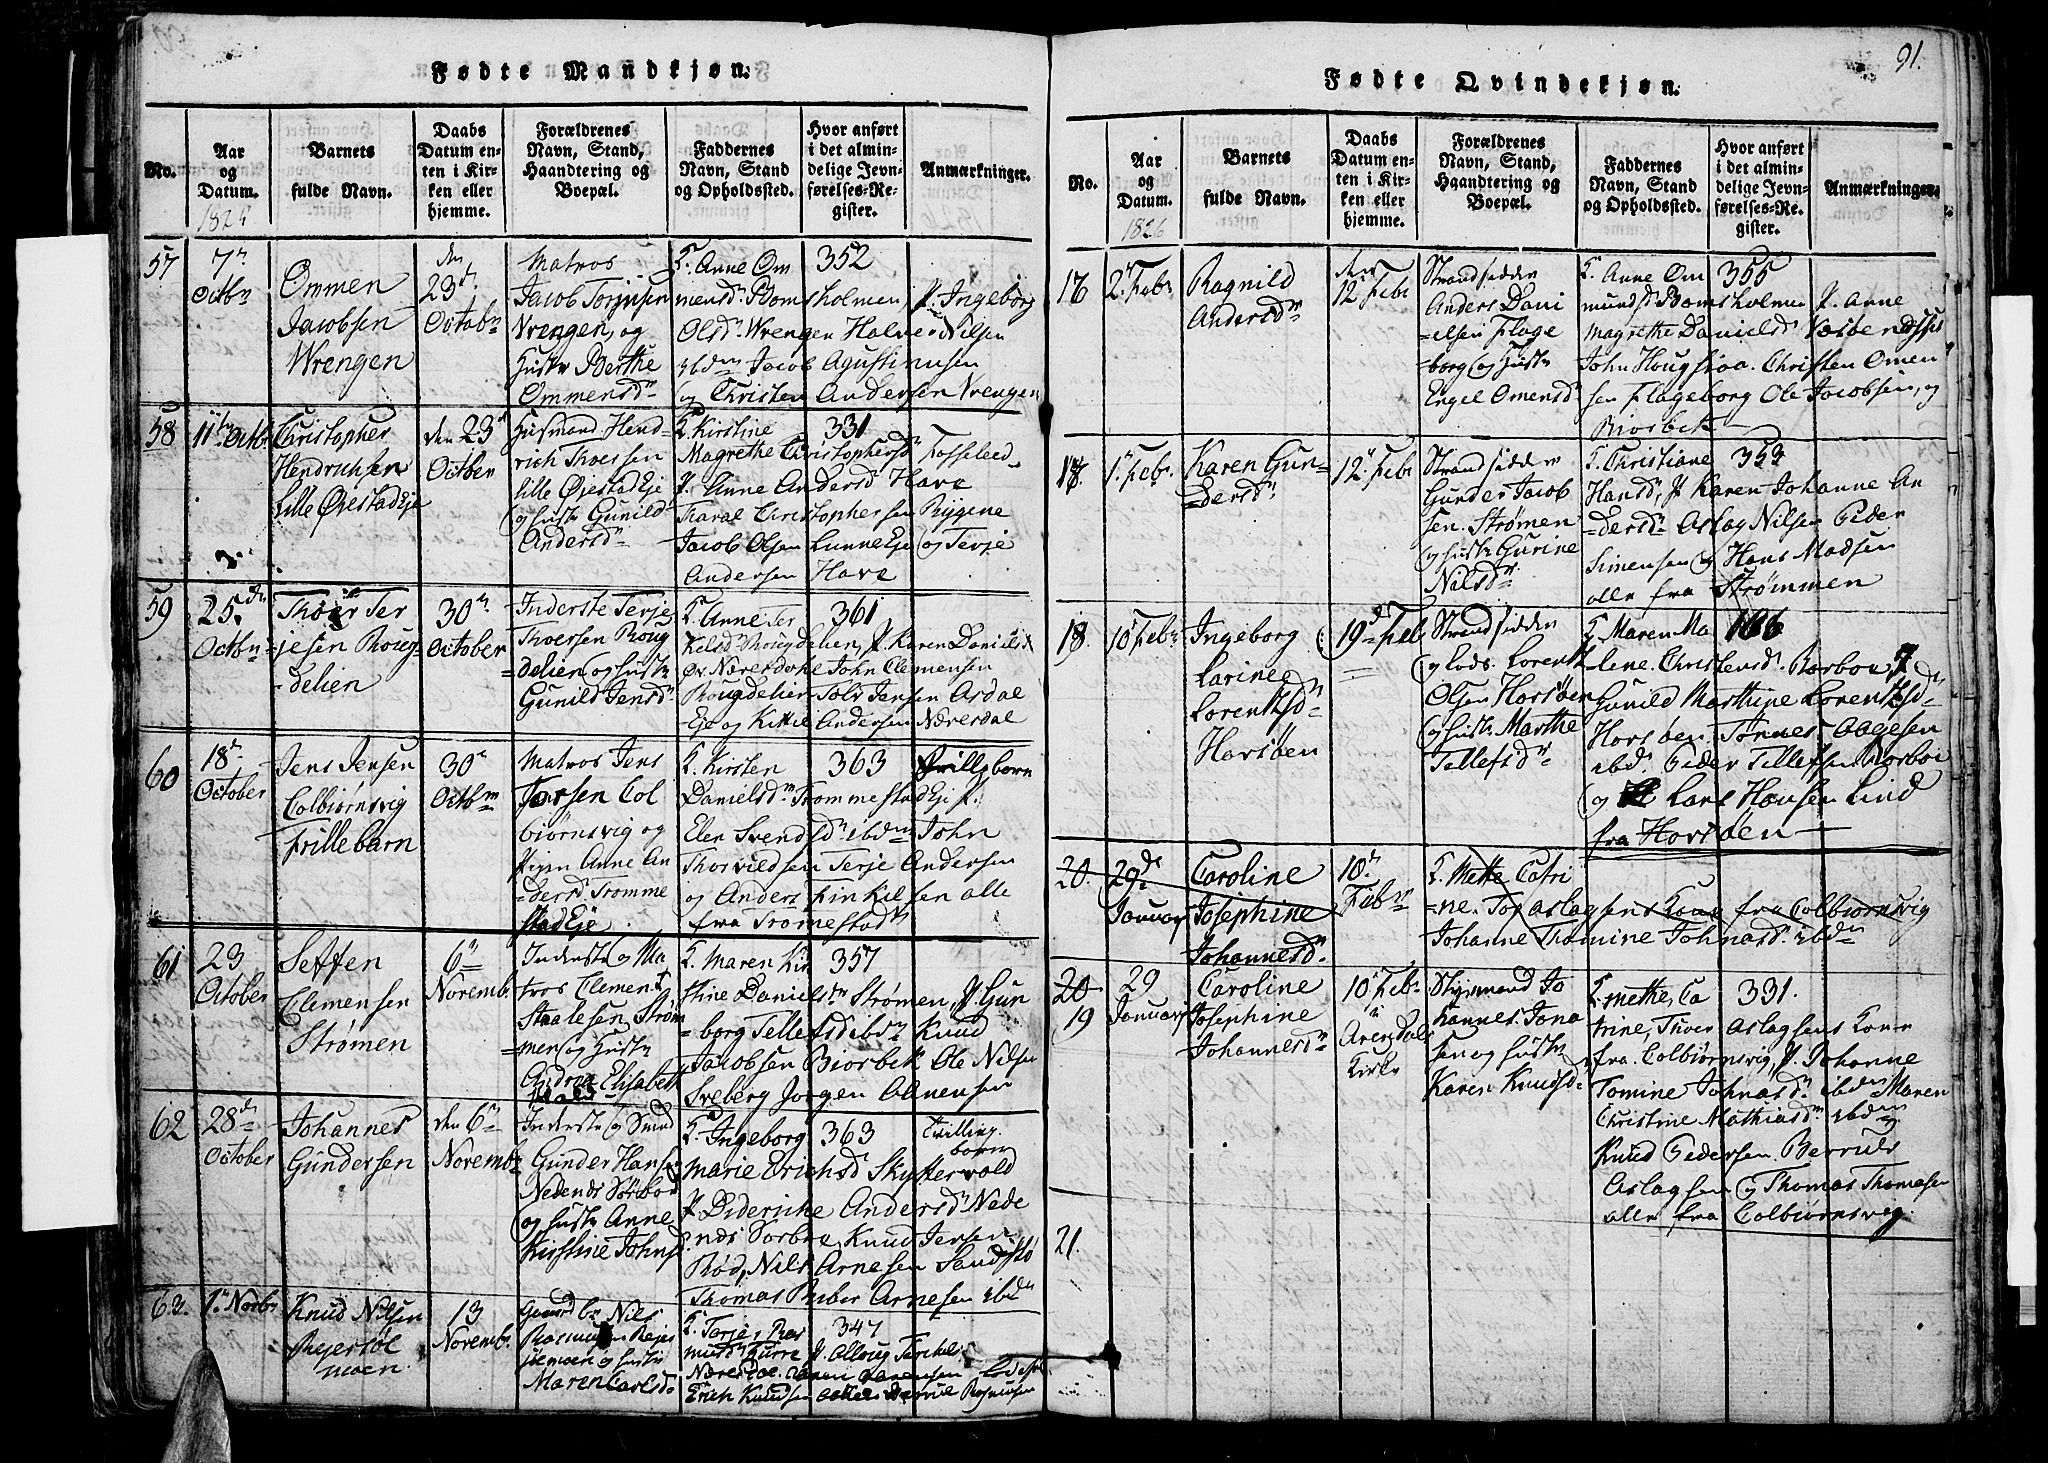 91.
Fødte Mandkjøn.
No.
Aar
og
Datum.
Barnets
fulde Navn.
Daabs
Datum en-
ten i Kir-
ken eller
hjemme.
Forældrenes
Navn, Stand,
Haandtering og
Boepæl.
Faddernes
Navn, Stand
og Opholdssted.
Hvor anført
i det almin-
delige Jevn-
førelses-Re-
gister.
Anmærkninger.
57
7n
Octbr
Ommen
Jacobsen
Wrengen
den
23d
Octobr
Matros
Jacob Torjusen
Wrengen, og
Hustr Berthe
Ommensd
F. Anne Om
mensd Bomsholmen, P. Ingeborg
Olsd Wrengen Halvor Nilsen
ibdm Jacob Agustinusen
og Christen Andersen Wrengen
352
58
11te Octbr
Christopher
Hendrichsen
Lille Øiestad Eje
den 23d
Octber
Husmand Hend-
rich Thoersen
Lille Øiestad Eje
og hustr Gunild
Andersd
F. Kirstine
Magrethe Christophersd Fosseleed
P. Anne Andersd Have
Taral Christophersen Rygene
Jacob Olsen Lunne Eje og Terje
Andersen Have
331
59
25de
Octbr
Thoer Ter
jesen Roug-
delien
30n
October
Inderste Terje
Thoersen Roug
delien og hustr
Gunild Jensd
F. Anne Ter
kelsd Rougdelien, P. Karen Danielsd
Ov. Næresdahl John Clemensen
Rougdelien Tolv Jensen Asdal
Eje og Kittil Andersen Næresdal
361
60
18d
October
Jens Jensen
Colbiørnsvig
Frillebarn
30n
Octbr
Matros Jens
Torsen Col
biørnsvig og
Pigen Anne An
dersd Tromme
stad Eje
F. Kirsten
Danielsd Trommestad Eje P.
Elen Svendsd ibdm John
Thorvildsen Terje Andersen
og Anders Finkilsen alle
fra Tromestad
363
Frillebarn
61
23
October
Steffen
Clemensen
Strømen
6n
Novemb.
Inderste og Ma
tros Clement
Staalesen Strøm
men og Hustr
Andrea Elisabeth
F. Maren Kir
stine Danielsd Strømen, P. Gun
borg Tellefsd ibdn Knud
Jacobsen Biorbek Ole Nilsen
Sveberg Jorgen Aanensen
357
62
28d
October
Johannes
Gundersen
den 6n
Novemb.
Inderste og Smed
Gunder Hansen
Nedenes Sorbo
og hustr Anne
Kirstine Johnsd
F. Ingeborg
Marie Erichsd Skytterwold
P. Diderikke Andersd Nede
nes Sorboe, Knud Jensen
Rød, Nils Arnesen Sandstø
Thomas Arnesen ibdm
363
Tvilling
born
63
1n Novbr
Knud Nilsen
Rejersøl
moen
13
Novemb.
Gaard br Nils
Rasmusen Rejer
sølmoen og hustr
Maren Carlsd
F. Torje Ras
musd P. Terkels
Næresdal
Erich Knudsen Rasmusen
347
Fødte Qvindekjøn.
No.
Aar
og
Datum.
1826
Barnets
fulde Navn.
Daabs
Datum en-
ten i Kir-
ken eller
hjemme.
Forældrenes
Navn, Stand,
Haandtering og
Boepæl.
Faddernes
Navn, Stand
og Opholdssted.
Hvor anført
i det almin-
delige Jevn-
førelses-Re-
gister.
Anmærkninger.
16
2n Febr
Ragnild
Andersd
den
12 Febr
Strandsidder
Anders Dani
elsen Flage
borg og Hustr
Engel Omensd
F. Anne Om
mundsd Bomsholmen P. Anne
Magrethe Danielsd
John Hougstoa. Christen Omen
sen Flageborg Ole Jacobsen, og
Biorbek
355
17
1n Febr.
Karen Gun-
dersd
12n Febr
Strandsidder
Gunder Jacob
sen Strømen
og hustr Gurine
Nilsd
F. Christiane
Hansd, P. Karen Johanne An
dersd Aslag Nilsen Peder
Simensen og Hans Madsen
alle fra Strømmen
353
18.
10 Febr
Ingeborg
Larine
Lorentzd
Havsøen
19d Feb
Strandsidder
og Lods. Lorentz
Olsen Havsøen
og hustr Marthe
Tellefsd
F. Maren Ma
lene Christensd Borboe P.
Gunild Marthine Lorentzsd
Havsøen. Tønnes Aagesen
ibd. Peder Tellefsen Borboe
og Lars Hansen Lind
fra Havsøen
166
20.
29d
Januar
Caroline
Josephine
Johannesd
10n
Febr
F. Mette Catri
ne. Tor Aslagsens Kone fra Colbiornsvig
Johanne Tomine Johnasd. ibdm
20
19
29
Januar
Caroline
Josephine
Johannesd
10 Febr.
i
Arendals
Kirke
Styrmand Jo
hannes Jona
sen og hustr
Karen Knudsd
F. Methe Ca
trine, Thoer Aslagsens Kone
fra Colbiørnsvig, P. Johanne
Tomine Johnasd ibdm Maren
Christine Mathiasd ibdm
Knud Pedersen Berruls
Aslagsen og Thomas Thomasen
alle fra Colbiornsvig.
331.
21.